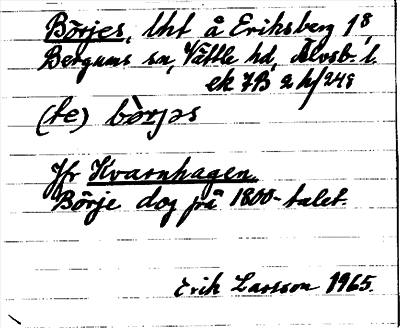 Börjes, lht å Eriksberg 1⁸,
Bergums sn, Vättle hd, Älvsb. l.
ek 7B 2 h/248
(te) bòrjəs
Jfr Kvarnhagen
Börje dog på 1800-talet.
Erik Larsson 1965.